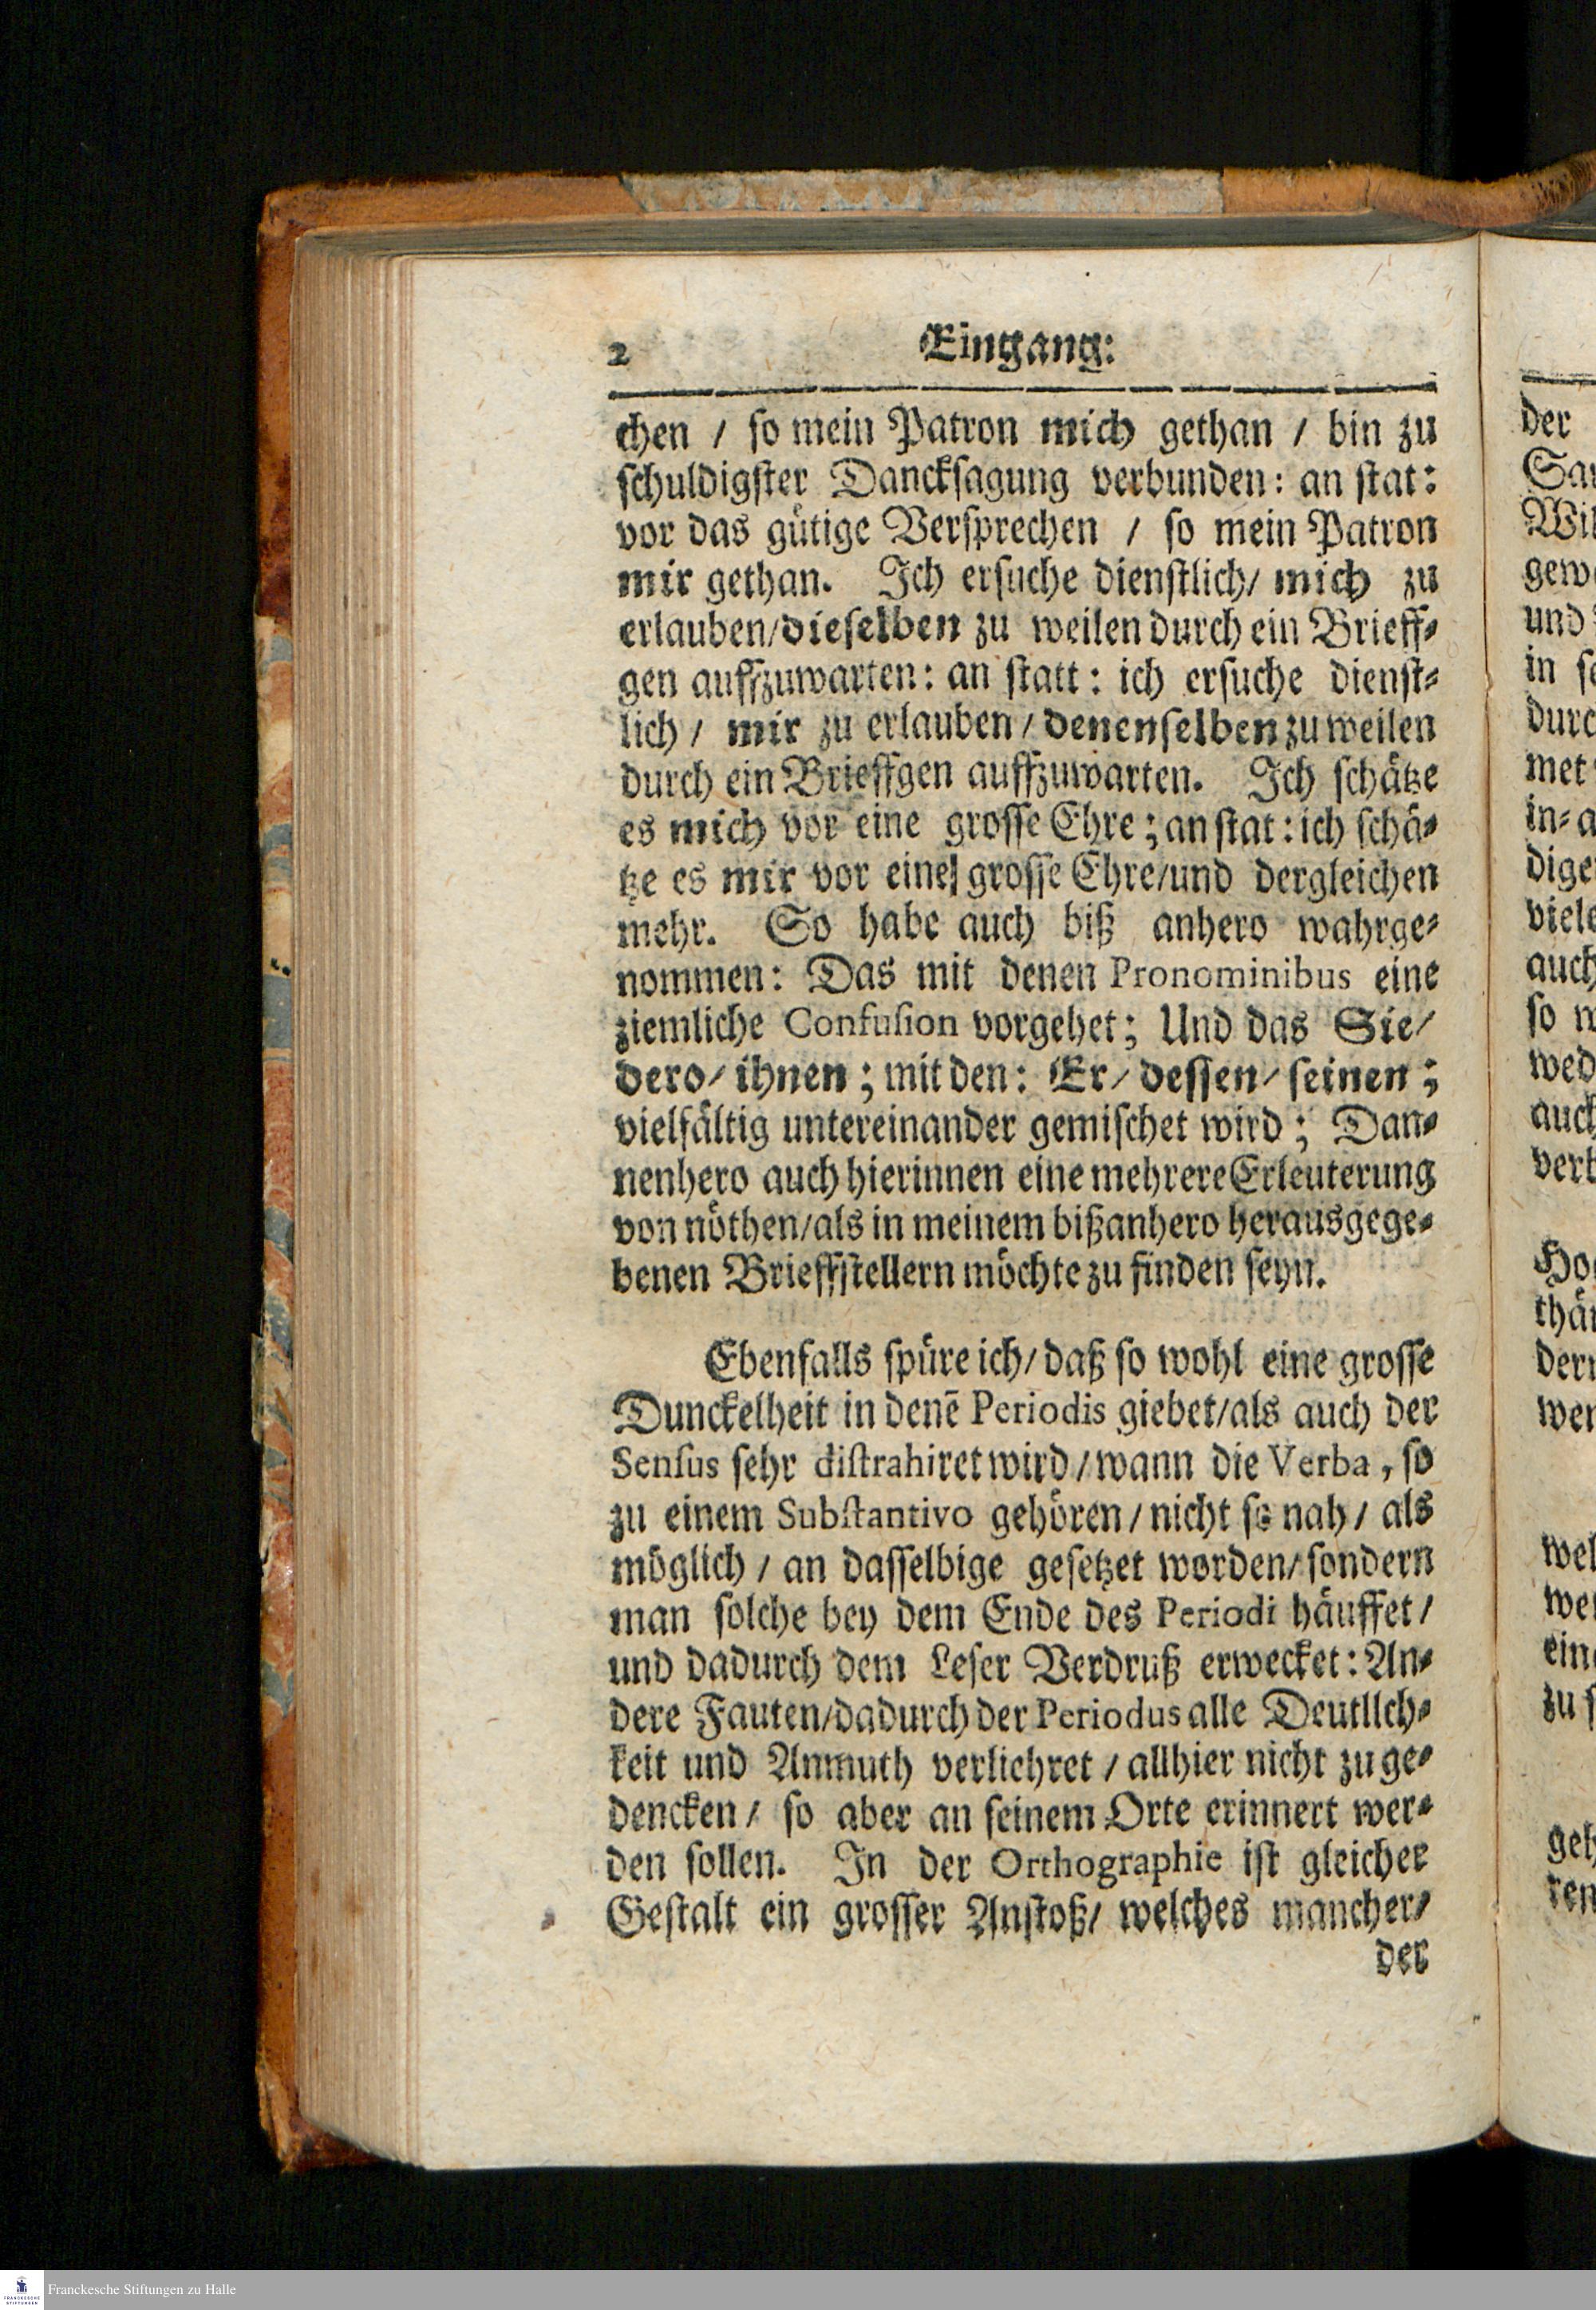 2 Eingang:
chen / so mein Patron mich gethan / bin zu
schuldigster Dancksagung verbunden: an stat:
vor das gütige Versprechen / so mein Patron
mir gethan. Ich ersuche dienstlich/ mich zu
erlauben/dieselben zu weilen durch ein Brieff-
gen auffzuwarten: an statt: ich ersuche dienst-
lich / mir zu erlauben / denenselben zu weilen
durch ein Brieffgen auffzuwarten. Ich schätze
es mich vor eine grosse Ehre; an stat: ich schä-
tze es mir vor eine grosse Ehre/und dergleichen
mehr. So habe auch biß anhero wahrge-
nommen: Das mit denen Pronominibus eine
ziemliche Confusion vorgehet; Und das Sie/
dero/ ihnen; mit den: Er/ dessen/ seinen;
vielfältig untereinander gemischet wird; Dan-
nenhero auch hierinnen eine mehrere Erleuterung
von nöthen/als in meinem bißanhero herausgege-
benen Brieffstellern möchte zu finden seyn.
Ebenfalls spüre ich/ daß so wohl eine grosse
Dunckelheit in denē Periodis giebet/als auch der
Sensus sehr distrahiret wird / wann die Verba, so
zu einem Substantivo gehören / nicht so nah / als
möglich / an dasselbige gesetzet worden/ sondern
man solche bey dem Ende des Periodi häuffet /
und dadurch dem Leser Verdruß erwecket: An-
dere Fauten/dadurch der Periodus alle Deutllch-
keit und Anmuth verliehret / allhier nicht zu ge-
dencken / so aber an seinem Orte erinnert wer-
den sollen. In der Orthographie ist gleicher
Gestalt ein grosser Anstoß/ welches mancher/
der
der
gew
und
in se
durc
met
in-a
dige
viele
auch
so w
wed
auch
verb
Ho
thä
wer
wel
ein
zu s
geh
ren
Franckesche Stiftungen zu Halle